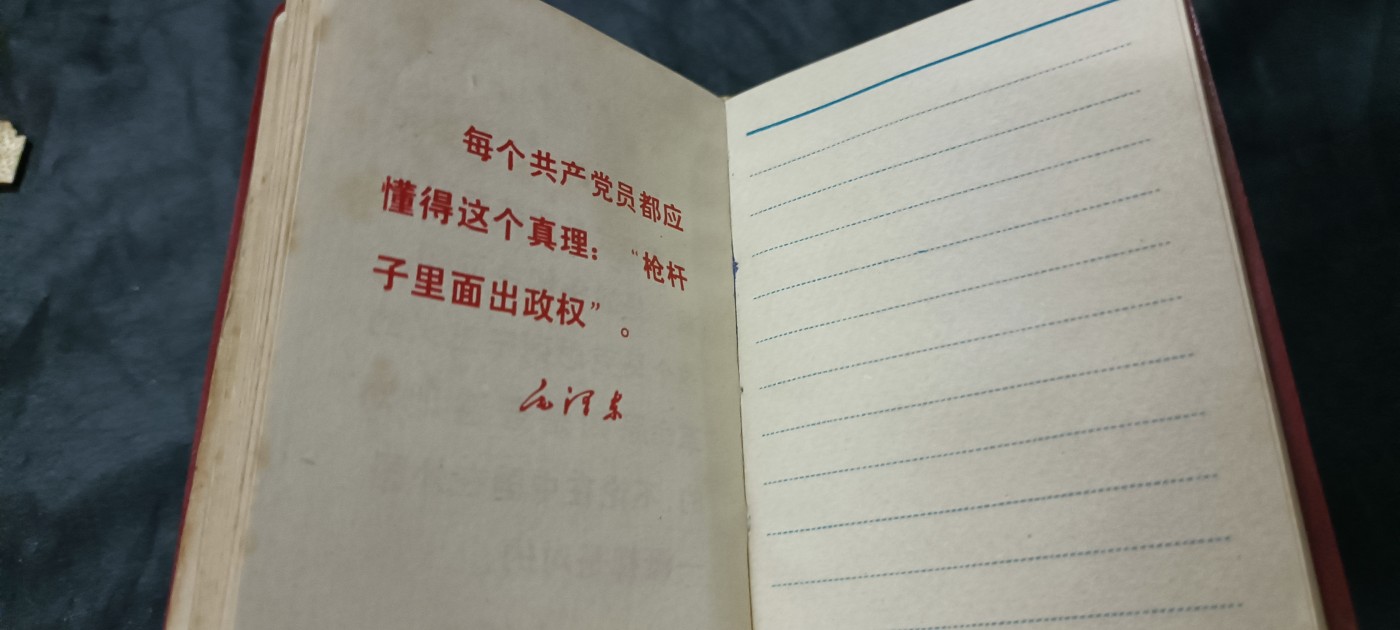 每个共产党员都应
懂得这个真理：“枪杆
子里面出政权”。
毛泽东